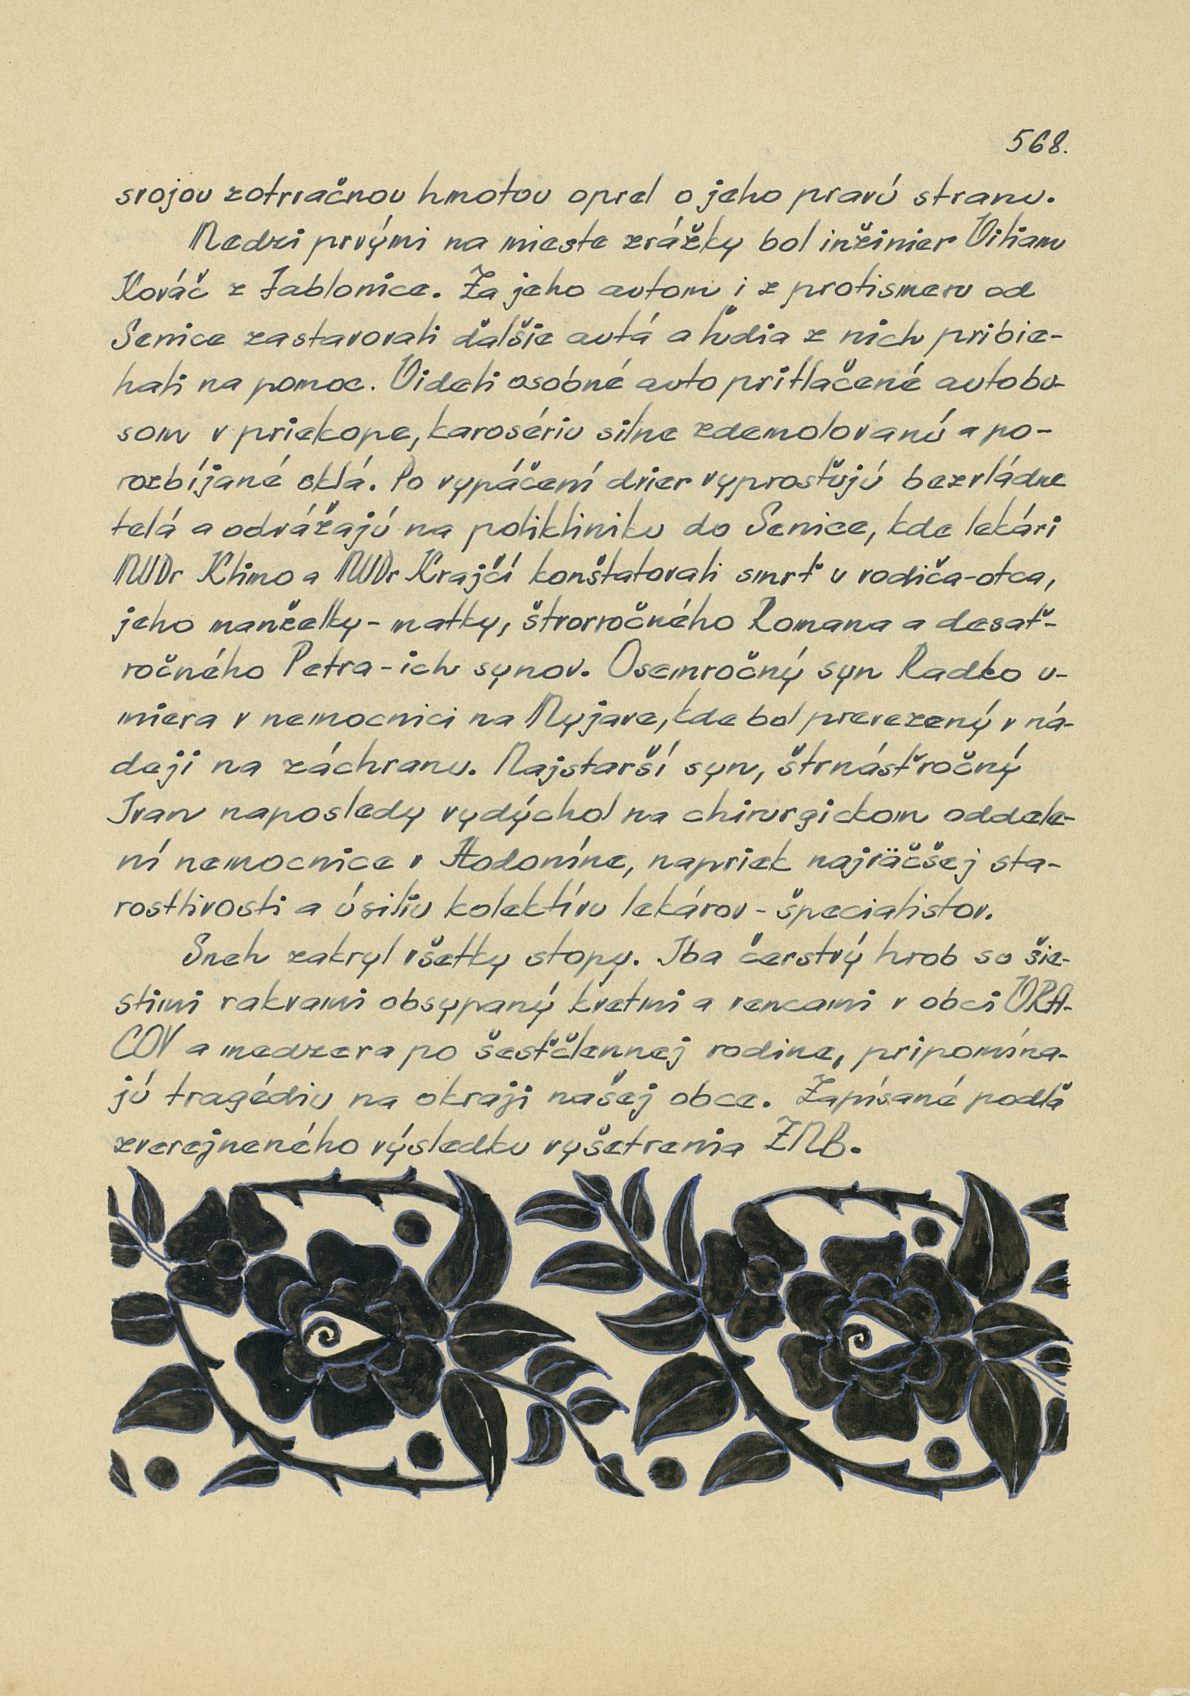 568.
svojou zotrvačnou hmotou oprel o jeho pravú stranu.
Medzi prvými na mieste zrážky bol inžinier Viliam
Kováč z Jablonice. Za jeho autom i z protismeru od
Senice zastavovali ďalšie autá a ľudia z nich pribie-
hali na pomoc. Videli osobné auto pritlačené autobu-
som v priekope, karosériu silne zdemolovanú a po-
rozbíjané sklá. Po vypáčení dvier vyprosťujú bezvládne
telá a odvážajú na polikliniku do Senice, kde lekári
MUDr Klimo a MUDr Krajčí konštatovali smrť u vodiča-otca,
jeho manželky - matky, štvorročného Romana a desať-
ročného Petra - ich synov. Osemročný syn Radko u-
miera v nemocnici na Myjave, kde bol prevezený v ná-
deji na záchranu. Najstarší syn, štrnásťročný
Ivan naposledy vydýchol na chirurgickom oddele-
ní nemocnice v Hodoníne, napriek najväčšej sta-
rostlivosti a úsiliu kolektívu lekárov - špecialistov.
Sneh zakryl všetky stopy. Iba čerstvý hrob so šie-
stimi rakvami obsypaný kvetmi a vencami v obci VRA-
COV a medzera po šesťčlennej rodine, pripomína-
jú tragédiu na okraji našej obce. Zapísané podľa
zverejneného výsledku vyšetrenia ZNB.